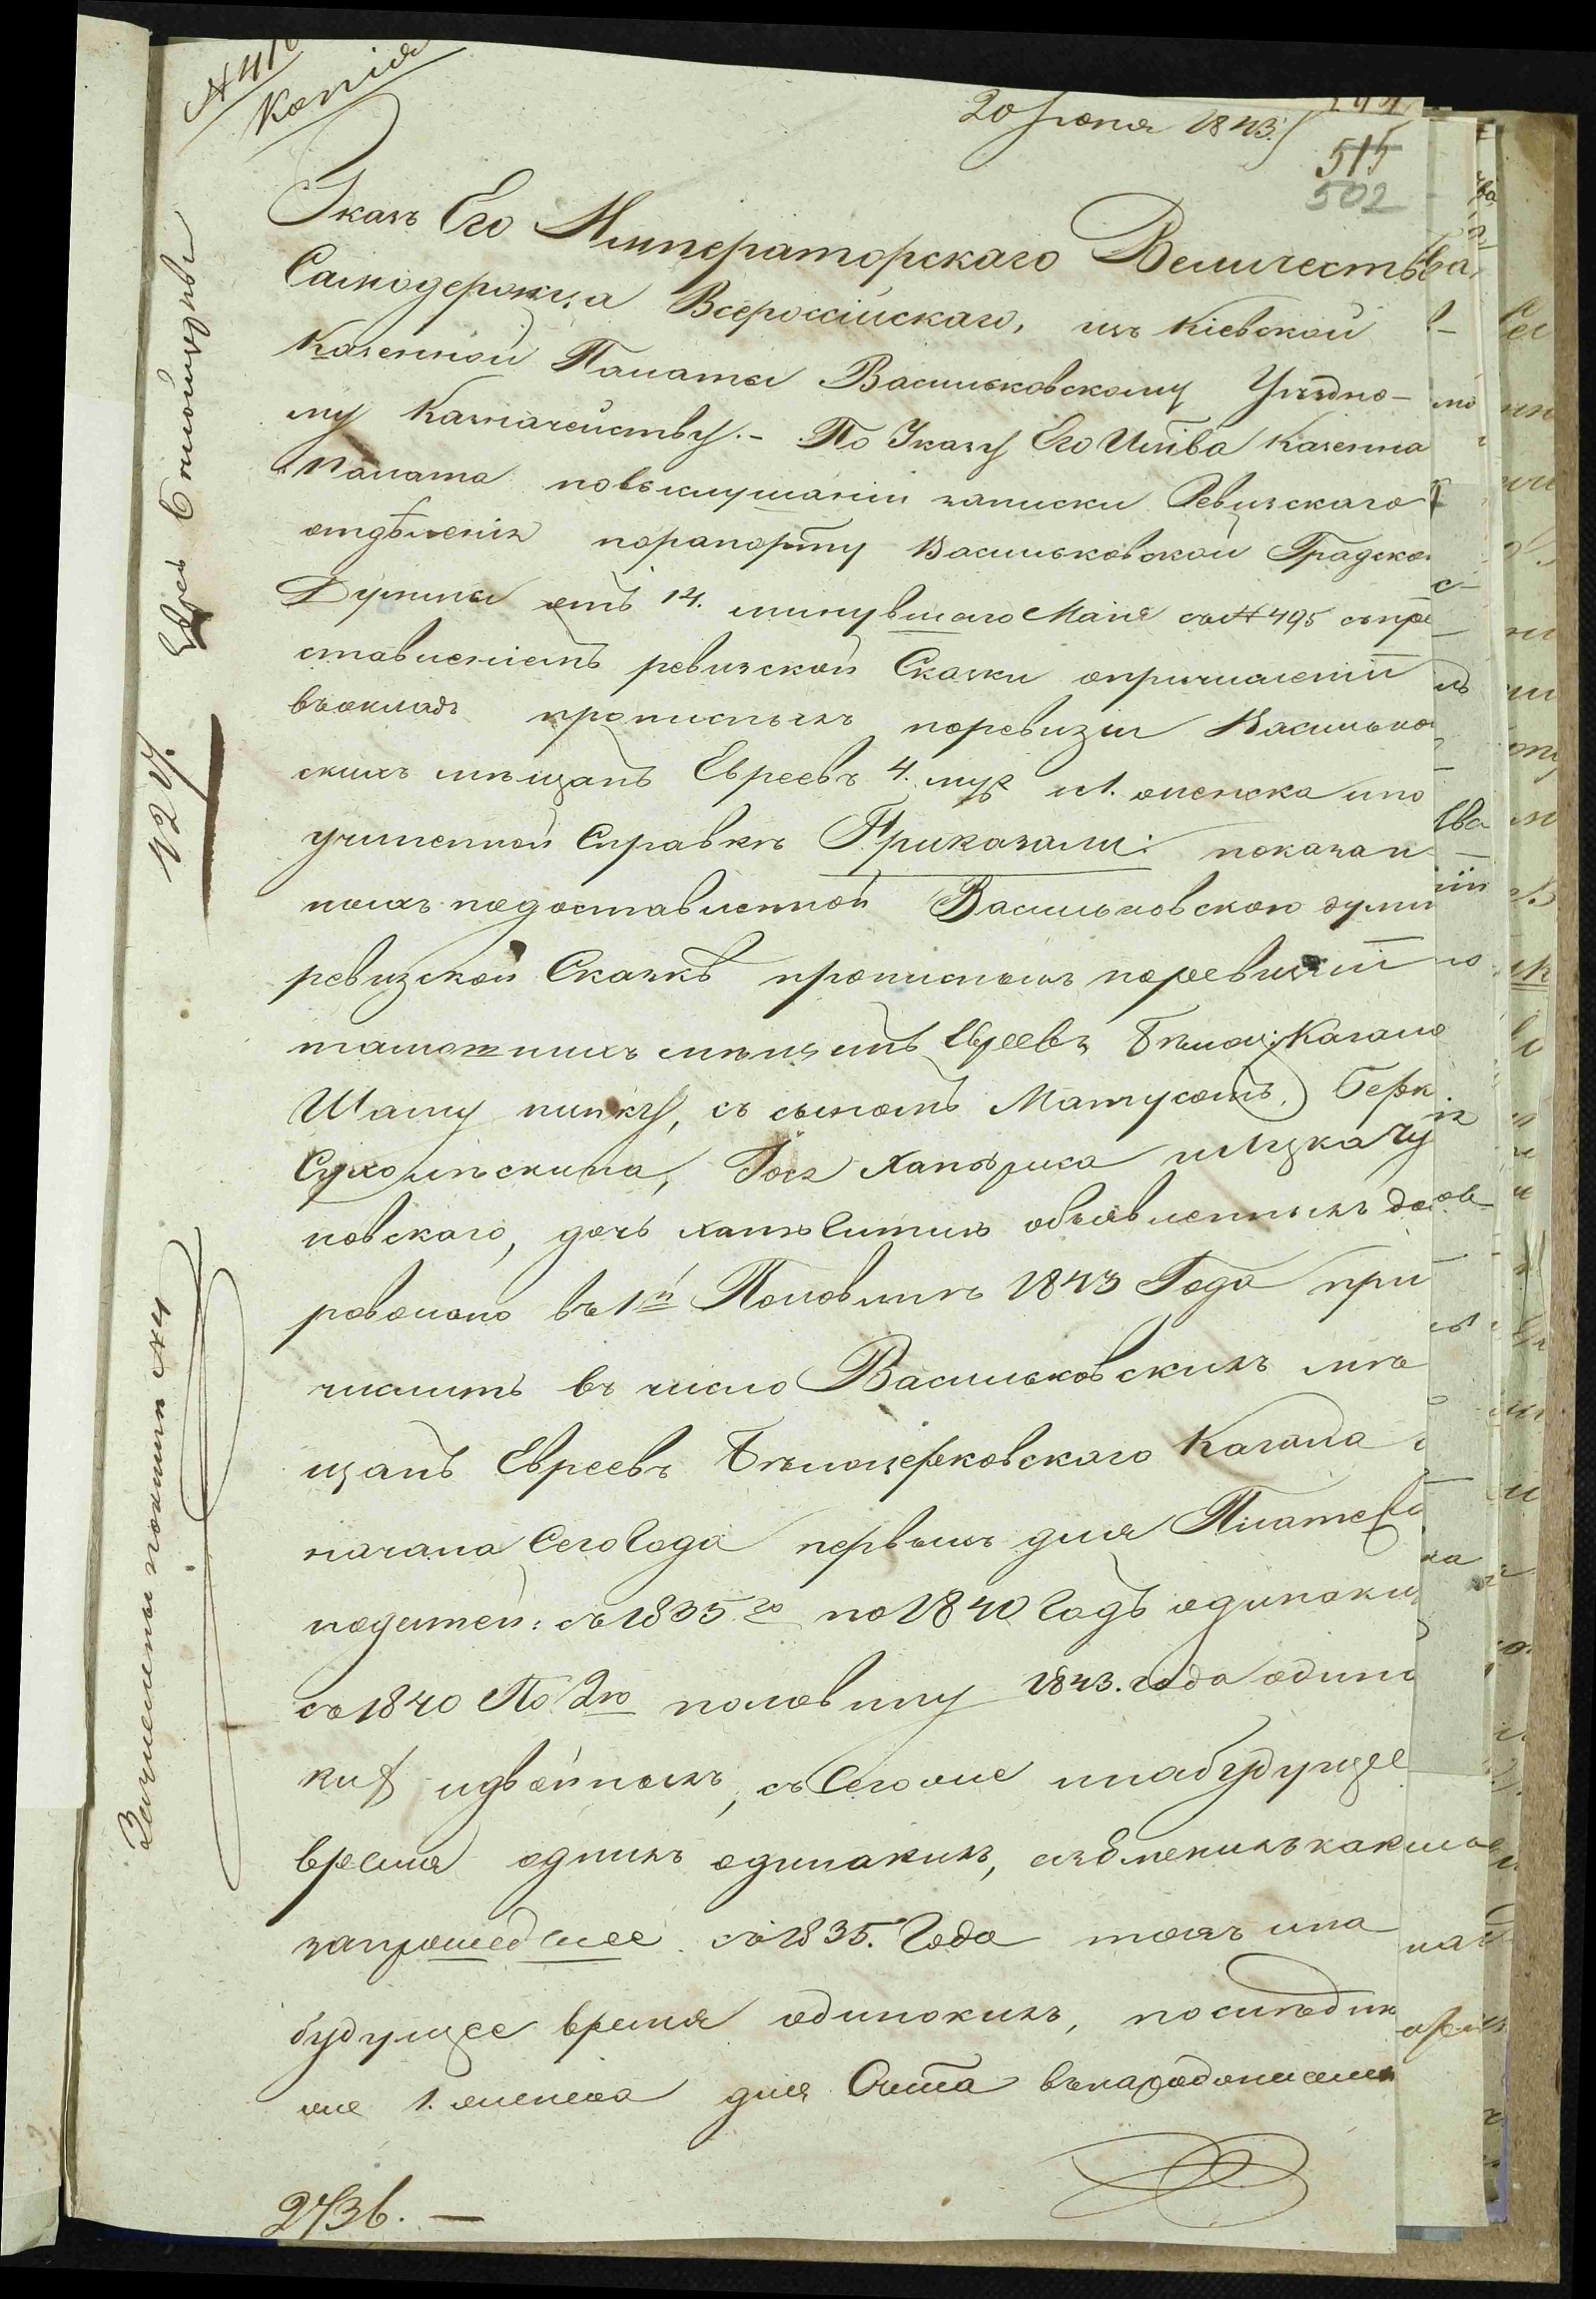 № 416
Копія
20 Іюня 1843.
515
502
Указъ Его Императорскаго Величества
Самодержца Всероссійскаго, изъ Кіевской
Казенной Палаты Васильковскому Уѣздно-
му Казначейству.- По Указу Его Имп̃ва Казенна
Палата повыслушаніи записки Ревизскаго
отдѣленія порапорту Васильковской Градской
Думы отъ 14. минувшаго Маія за № 495 съпре
ставленіемъ ревизской Сказки опричисленіи
въокладъ прописныхъ поревизіи Васильков
скихъ мѣщанъ Евреевъ 4. муж и 1. женска ипо
учиненной Справкѣ Приказали: показан
ныхъ подоставленной Васильковскою думы
ревизской Сказкѣ прописныхъ поревизіи
тамошнихъ мѣщанъ Евреевъ Бѣлоц: Кагала
Шаму, съ сыномъ Матусомъ, Берк
Сухолѣскиха, Іося и Ицка Чу
новскаго, дочь объявленныхъ доб
ровольно въ 1й Половинѣ 1843 Года при
числить въ число Васильковскихъ мѣ
щанъ Евреевъ Бѣлоцерковскаго Кагала с
начала Сего Года первыхъ для Платежа
податей: съ 1835го по 1840 Годъ одинаки
съ 1840 По 2ю половину 1843. года одина
ки идвойныхъ, съ Сегоже инабудущее
время однихъ одинакихъ, какъ
запрошедшее съ 1835. Года такъ ина
будущее время одинокихъ, послѣдню
же 1. женска для Счета въ народонаселен
2736. —
12 У.
Зачислены